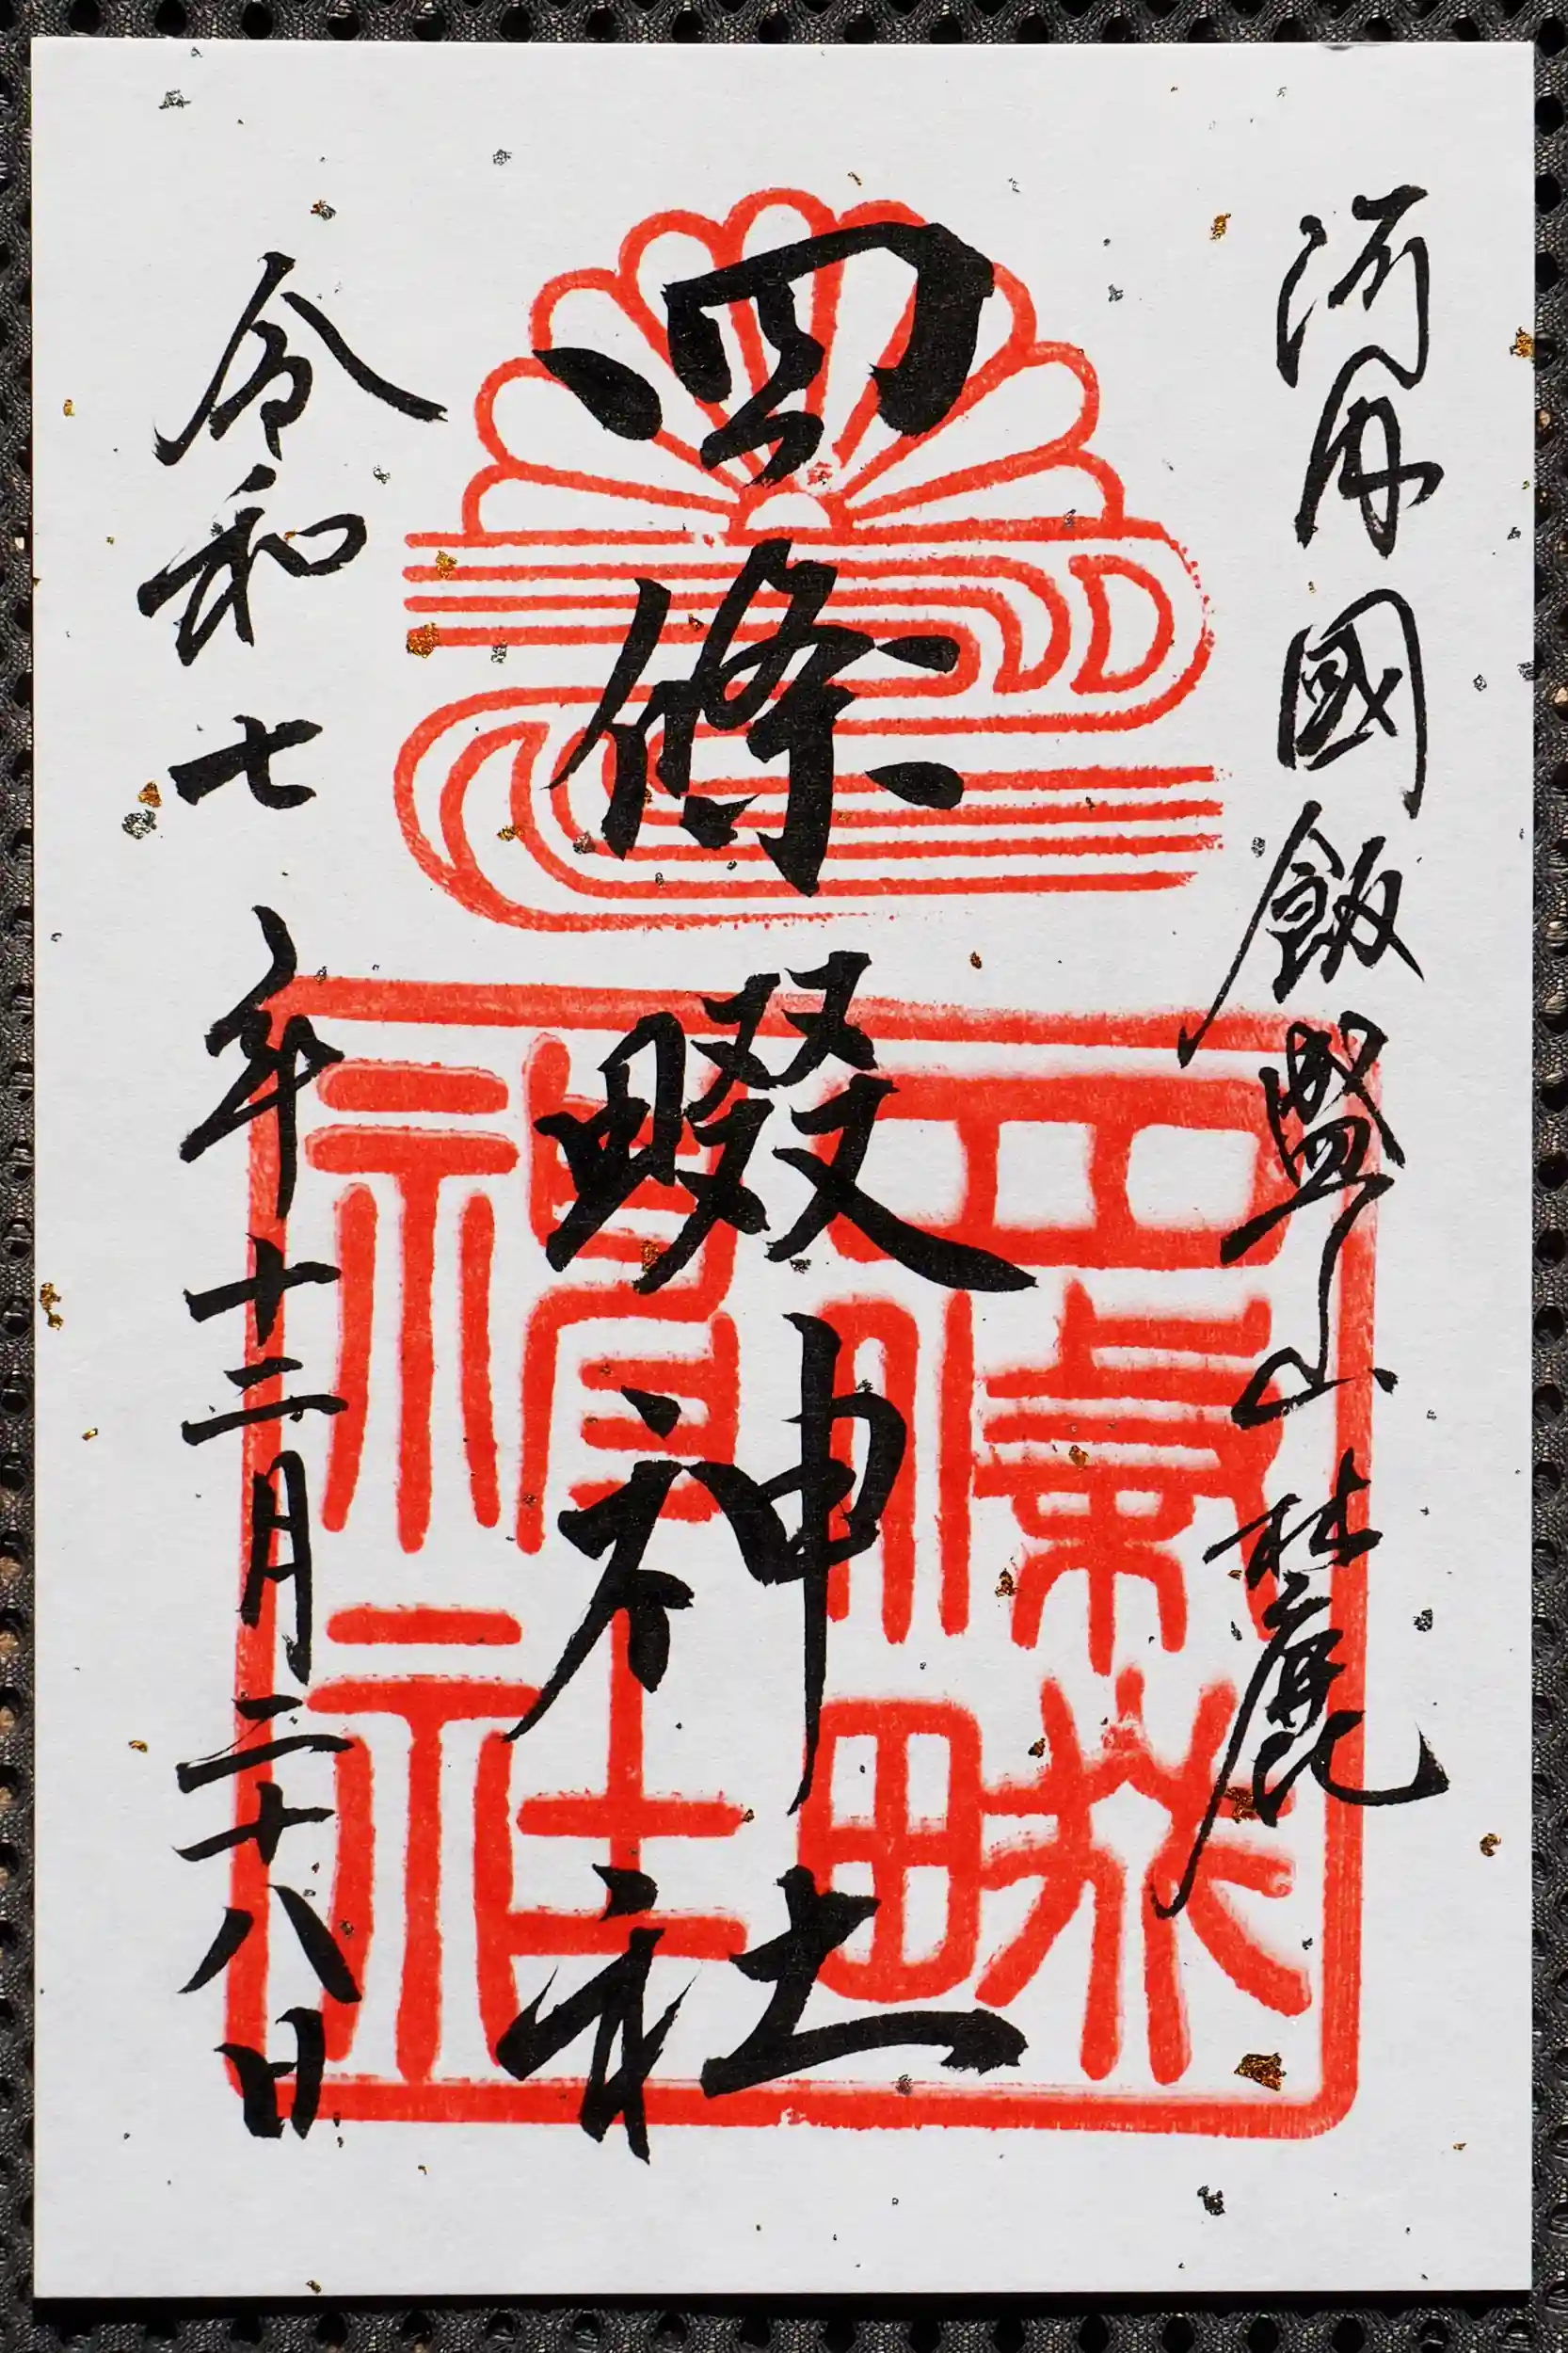 河内國飯盛山麓
四條畷神社
令和七年十二月二十八日
四條畷
神社